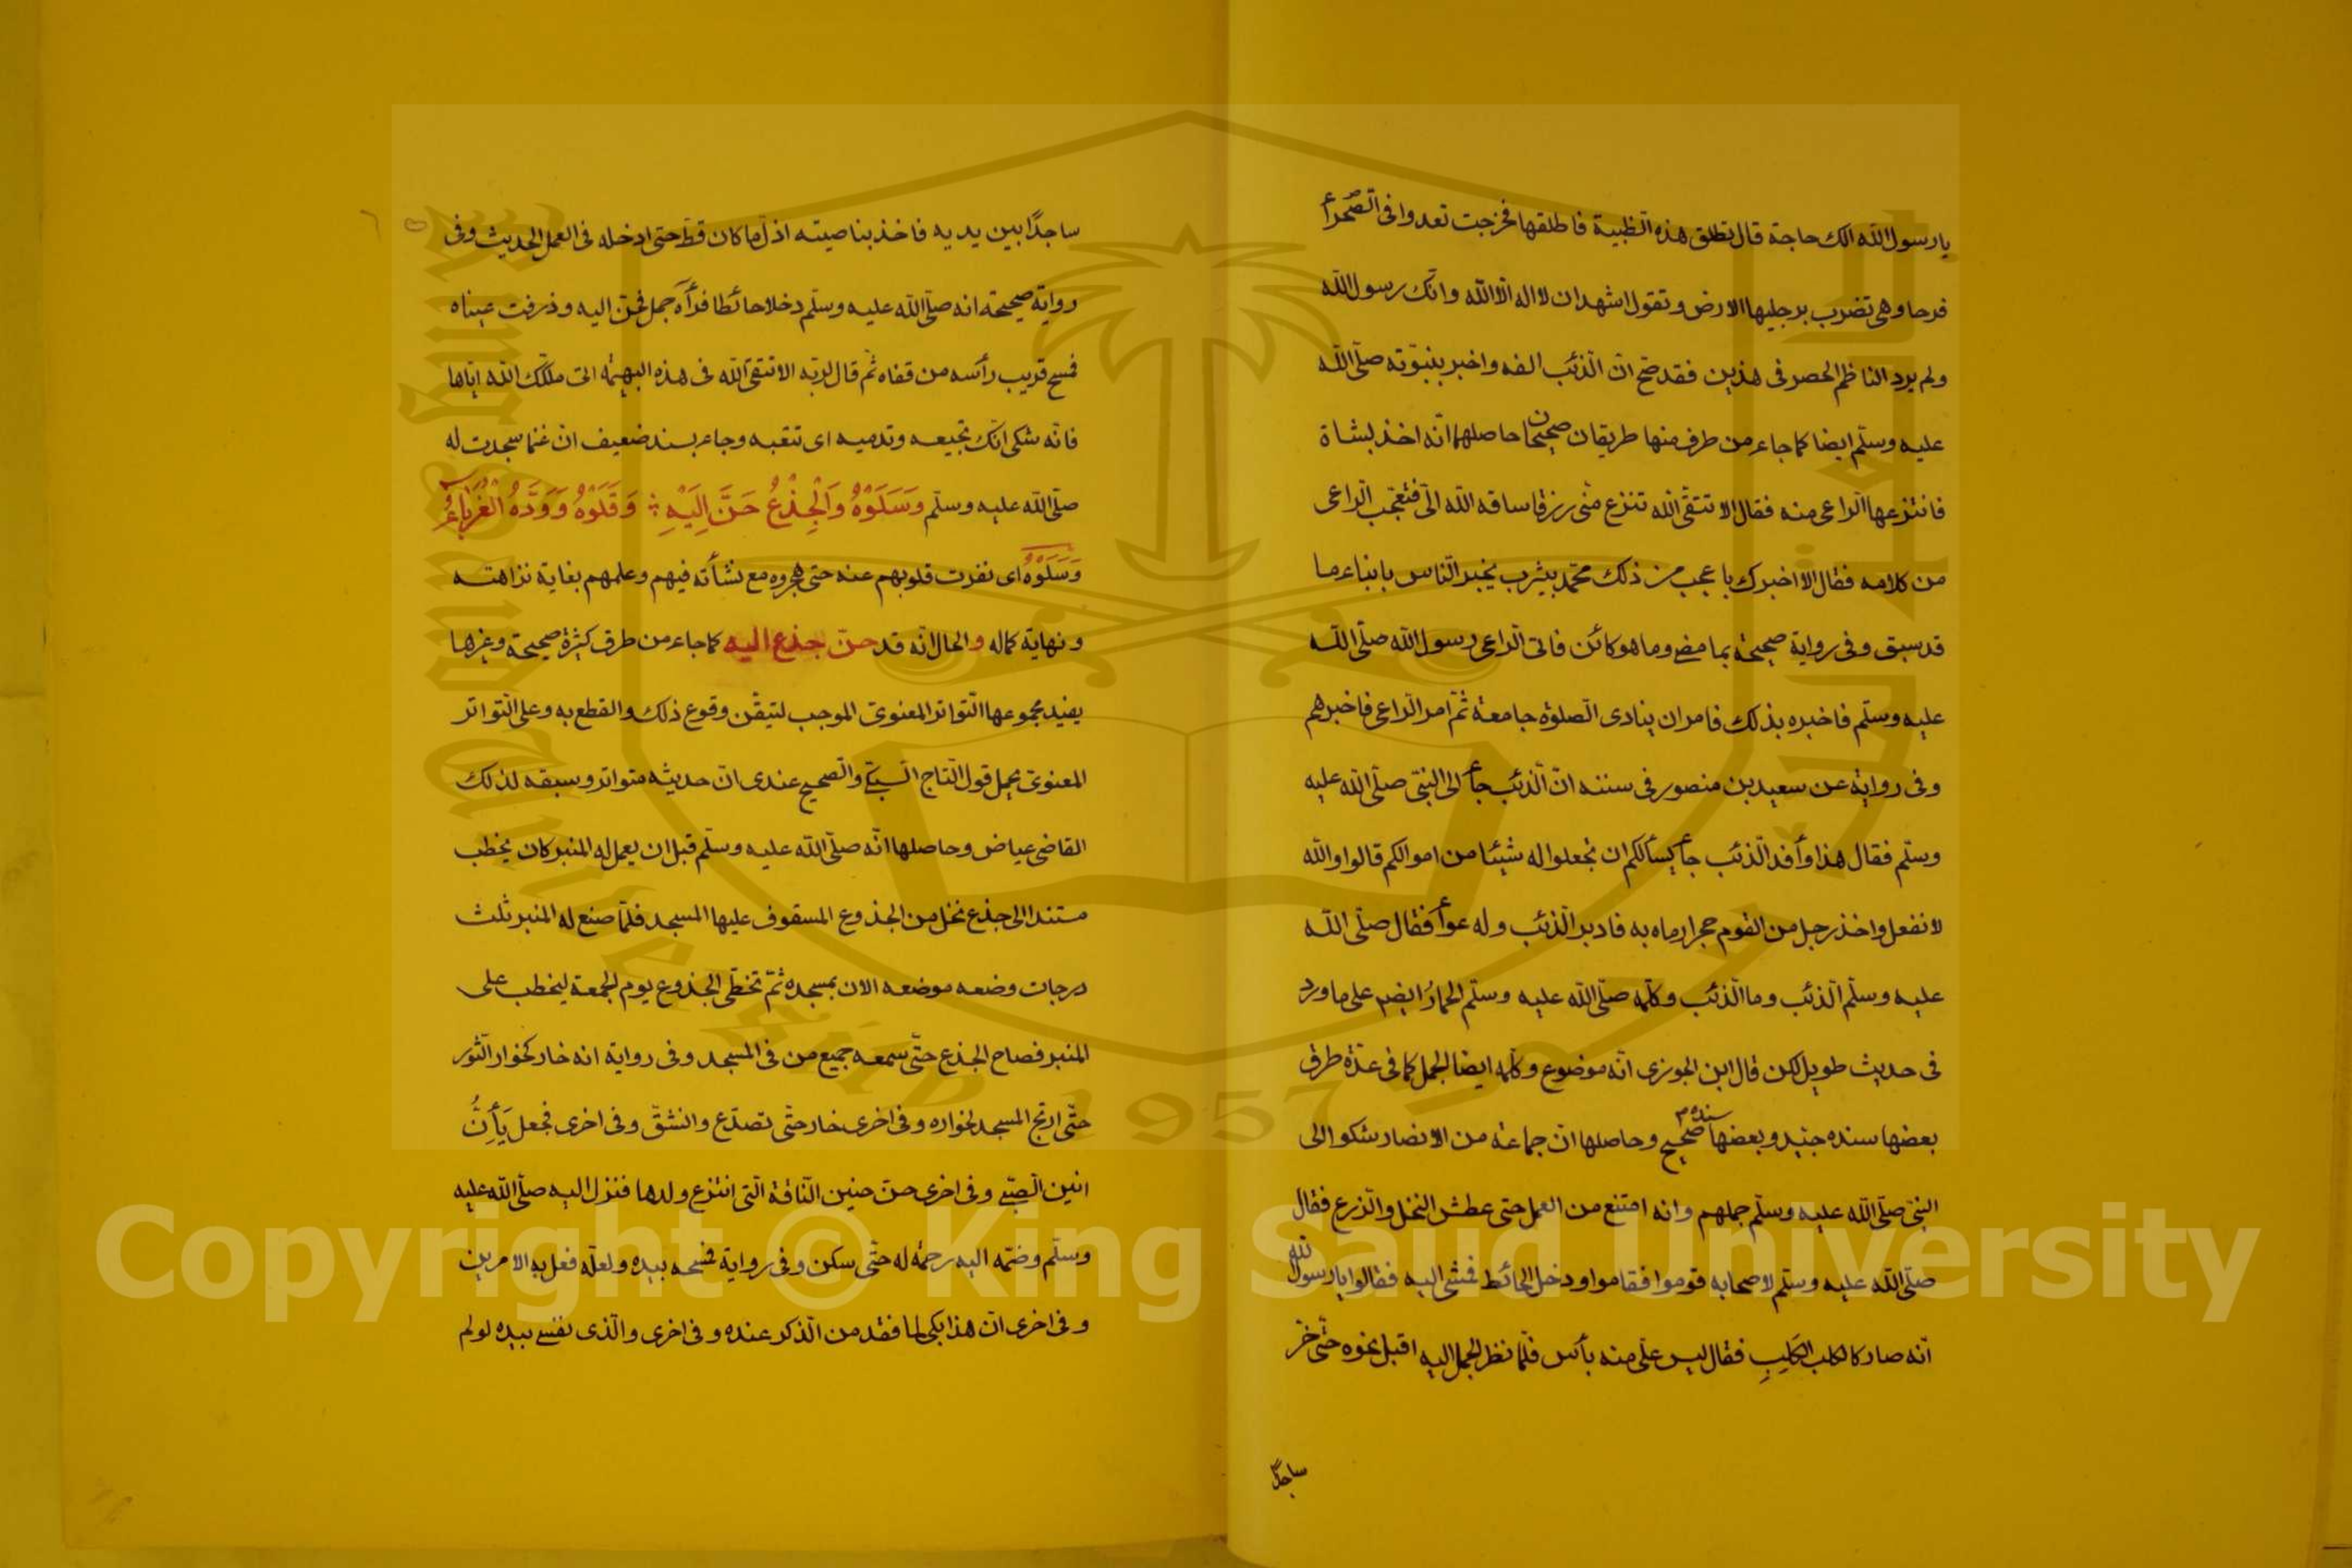 يا رسول الله الك حاجة قال تطلق هذه الظبية فاطلقها فخرجت تعدوا فى الصّحرأ
فرحا وهى تضرب برجليها الارض وتقول اشهد ان لا اله الّا الله وانّك رسول الله
ولم يرد الناظم الحصر فى هذين فقد صحّ انّ الذئب الفه واخبر بنبوّته صلّى الله
عليه وسلّم ايضا كما جاء من طرف منها طريقان صحيحان حاصلهما انّه اخذ بشاة
فانتزعها الراعى منه فقال الا تتقى الله تنزع منّى رزقا ساقه الله الىّ فتعجّب الراعى
من كلامه فقال الا اخبرك باعجب من ذلك محمّد بيثرب يخبر النّاس بانباء ما
قد سبق وفى رواية صحيحة بما مضى وما هو كائن فاتى الراعى رسول الله صلّى الله
عليه وسلّم فاخبره بذلك فامر ان ينادى الصّلوة جامعة ثمّ امر الراعى فاخبرهم
وفى رواية عن سعيد بن منصور فى سننه انّ الذئب جأ الى النبىّ صلّى الله عليه
وسلّم فقال هذا وأفد الذئب جأ يسألكم ان تجعلوا له شيئا من اموالكم قالوا والله
لا نفعل واخذ رجل من القوم حجرا رماه به فادبر الذئب وله عوأ فقال صلّى الله
عليه وسلّم الذئب وما الذئب وكلّمه صلّى الله عليه وسلّم الحمارُ ايضا على ما ورد
فى حديث طويل لكن قال ابن الجوزى انّه موضوع وكلّمه ايضا الجمل كما فى عدّة طرق
بعضها سنده جيّد وبعضها سنده صحيح وحاصلها انّ جماعة من الانصار شكو الى
النبىّ صلّى الله عليه وسلّم جملهم وانه امتنع من العمل حتى عطش النخل والزرع فقال
صلّى الله عليه وسلّم لاصحابه قوموا فقاموا ودخل الحائط فمشى اليه فقالوا يا رسول الله
انّه صار كالكلب الكَلِبِ فقال ليس علىّ منه بأس فلمّا نظر الجمل اليه اقبل نحوه حتّى خرّ
ساجدًا
ساجدًا بين يديه فاخذ بناصيته اذلّ ما كان قطّ حتى ادخله فى العمل الحديث وفى
رواية صحيحة انه صلّى الله عليه وسلّم دخل حائطا فرأه جمل فحنّ اليه وذرفت عيناه
فمسح قريب رأسه من قفاه ثمّ قال لربّه الا تتقى الله فى هذه البهيمة التى ملّكك الله ايّاها
فانّه شكى انّك تجيعه وتدميه اى تتعبه وجاء بسند ضعيف انّ غنما سجدت له
صلّى الله عليه وسلّم وَسَلَوْهُ وَالْجِذْعُ حَنَّ اِلَيْهِ وَقَلَوْهُ وَوَدَّهُ الْغُرَبَاءُ
وَسَلَوْهُ اى نفرت قلوبهم عنه حتى هجروه مع نشأته فيهم وعلمهم بغاية نزاهته
ونهاية كماله والحال انّه قد حنّ جذع اليه كما جاء من طرق كثيرة صحيحة وغيرها
يفيد مجموعها التّواتر المعنوىّ الموجب لتيقّن وقوع ذلك والقطع به وعلى التّواتر
المعنوىّ يحمل قول التّاج السّبكى والصّحيح عندى انّ حديثه متواتر وسبقه لذلك
القاضى عياض وحاصلها انّه صلّى الله عليه وسلّم قبل ان يعمل له المنبر كان يخطب
مستندا الى جذع نخل من الجذوع المسقوف عليها المسجد فلمّا صنع له المنبر ثلث
درجات وضعه موضعه الان بمسجده ثمّ تخطّى الجذوع يوم الجمعة ليخطب على
المنبر فصاح الجذع حتّى سمعه جميع من فى المسجد وفى رواية انه خار كخوار الثّور
حتّى ارتج المسجد لخواره وفى اخرى خار حتّى تصدّع وانشقّ وفى اخرى فجعل يَأَنُّ
انين الصّبى وفى اخرى حنّ حنين النّاقة الّتى انتزع ولدها فنزل اليه صلّى الله عليه
وسلّم وضمّه اليه رحمة له حتّى سكن وفى رواية فمسحه بيده ولعلّه فعل به الامرين
وفى اخرى انّ هذا بكى لما فقد من الذكر عنده وفى اخرى والّذى نفسى بيده لو لم
Copyright © King Saud University
King Saud University 1957